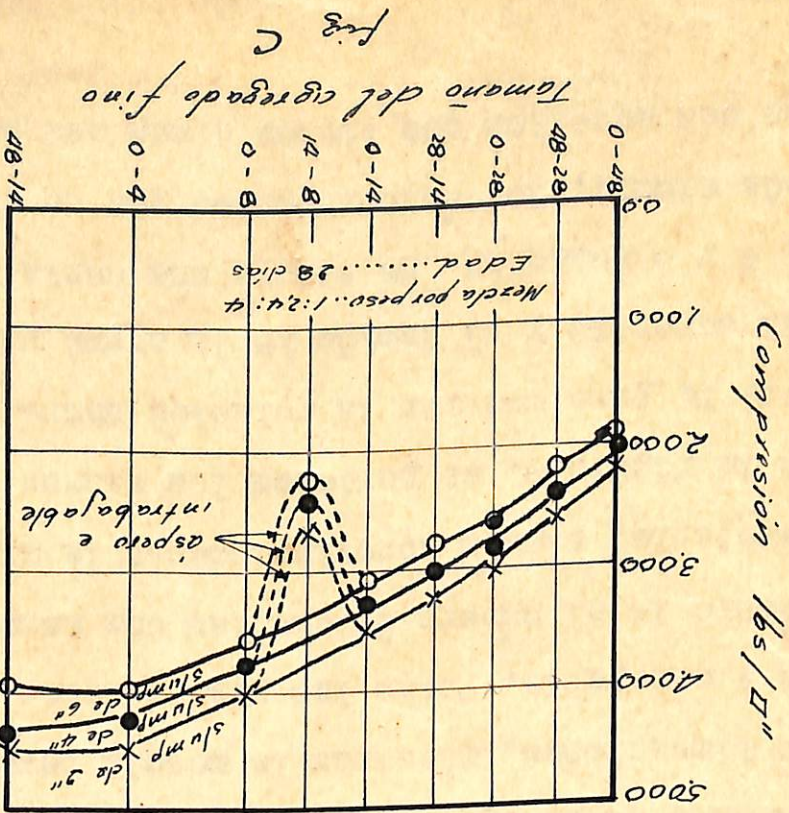 Compresión lbs/□"
5,000
4,000
3,000
2,000
1,000
0.0
slump de 2"
slump de 4"
slump de 6"
áspero e
intrabajable
Mezcla por peso..1:2,4:4
Edad........28 días
0-48
48-28
0-28
28-14
0-14
14-8
0-8
0-4
48-14
Tamaño del agregado fino
fig C